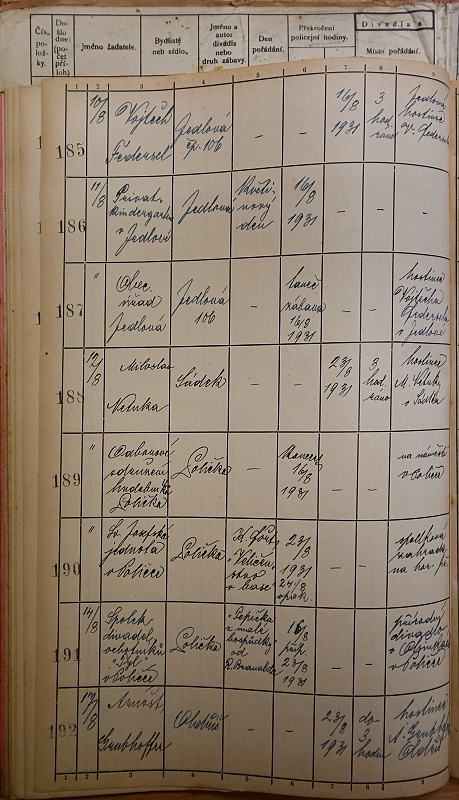 Čís.
po-
lož-
ky.
Do-
šlo
dne:
(po-
čet
pří-
loh)
Jméno žadatele.
Bydliště
neb sídlo.
Jméno a
autor
divadla
nebo
druh zábavy.
Den
pořádání.
Překročení
policejní hodiny.
Divadla a
Místo pořádání.
1 2 3 4 5 6 7 8 9
185
10/8
Vojtěch
Federsel
Jedlová
čp. 106
—
—
16/8
1931
3
hod
ráno
Jedlová
hostinec
V. Federsel
186
11/8
Privat.
Kindergarten
v Jedlové
Jedlová
Květi-
nový
den
16/8
1931
—
—
—
187
"
Obec.
úřad
Jedlová
Jedlová
106
—
taneč
zábava
16/8
1931
—
—
hostinec
Vojtěcha
Federsela
v Jedlové
188
12/8
Miloslav
Netuka
Sádek
—
—
23/8
1931
3
hod.
ráno
hostinec
M. Netuky
v Sádku
189
"
Odborové
sdružení
hudebníků
Polička
Polička
—
Koncert
16/8
1931
—
—
na náměstí
v Poličce
190
"
Sv. Josefská
jednota
v Poličce
Polička
23/8
1931
24/8
opak.
—
—
zahrada
191
14/8
Spolek
divadel.
ochotníků
"Tyl"
v Poličce
Polička
"Pepička
z malé
hospůdky"
od
16/8
23/8
1931
—
—
přírodní
divadlo
v Poličce
192
17/8
Arnošt
Grubhoffer
—
—
23/8
1931
do
3
hodin
hostinec
A. Grubhoffer
1 2 3 4 5 6 7 8 9